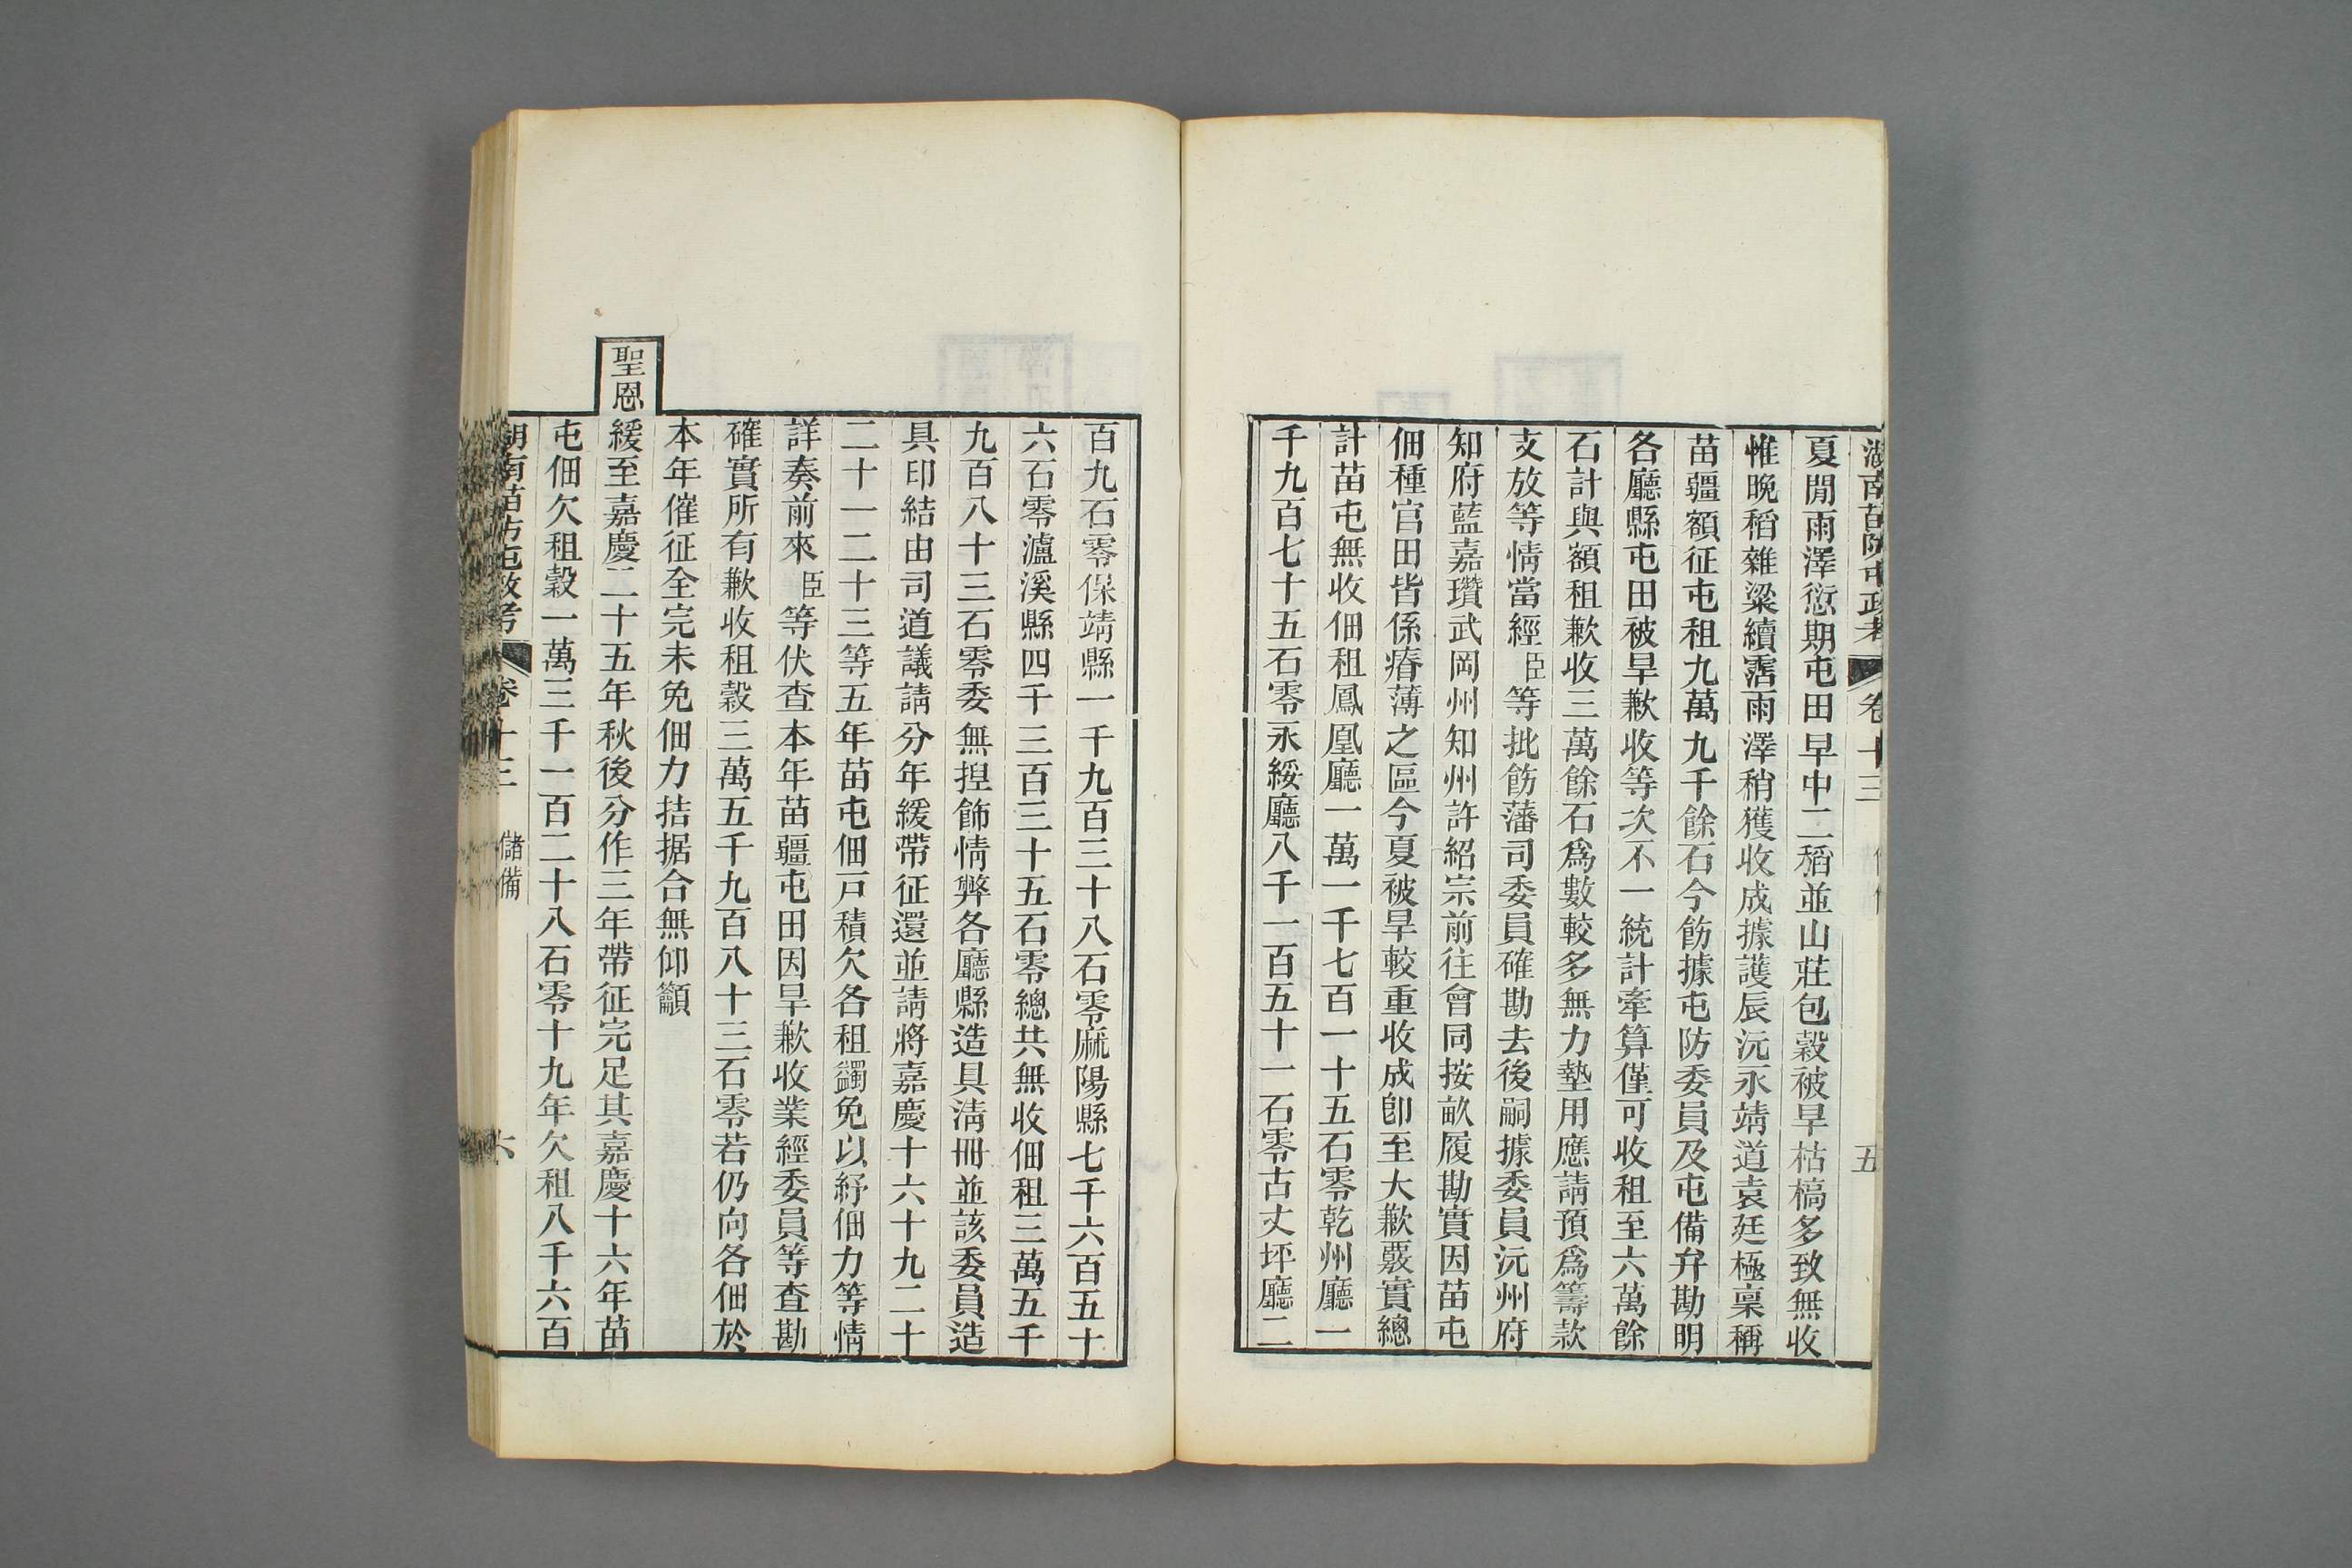 湖南苗防屯政考 卷十三 五
夏閒雨澤愆期屯田早中二稻並山莊包穀被旱枯槁多致無收
惟晚稻雜粱續霑雨澤稍獲收成據護辰沅永靖道袁廷極稟稱
苗疆額征屯租九萬九千餘石今飭據屯防委員及屯備弁勘明
各廳縣屯田被旱歉收等次不一統計牽算僅可收租至六萬餘
石計與額租歉收三萬餘石爲數較多無力墊用應請預爲籌款
支放等情當經臣等批飭藩司委員確勘去後嗣據委員沅州府
知府藍嘉瓚武岡州知州許紹宗前往會同按畝履勘實因苗屯
佃種官田皆係瘠薄之區今夏被旱較重收成卽至大歉覈實總
計苗屯無收佃租鳳凰廳一萬一千七百一十五石零乾州廳一
千九百七十五石零永綏廳八千一百五十一石零古丈坪廳二
百九石零保靖縣一千九百三十八石零麻陽縣七千六百五十
六石零瀘溪縣四千三百三十五石零總共無收佃租三萬五千
九百八十三石零委無揑飾情弊各廳縣造具淸冊並該委員造
具印結由司道議請分年緩帶征還並請將嘉慶十六十九二十
二十一二十三等五年苗屯佃戸積欠各租蠲免以紓佃力等情
詳奏前來臣等伏查本年苗疆屯田因旱歉收業經委員等查勘
確實所有歉收租穀三萬五千九百八十三石零若仍向各佃於
本年催征全完未免佃力拮据合無仰籲
聖恩緩至嘉慶二十五年秋後分作三年帶征完足其嘉慶十六年苗
屯佃欠租穀一萬三千一百二十八石零十九年欠租八千六百
湖南苗防屯政考 卷十三 儲備 六